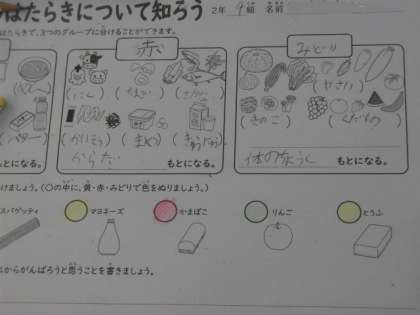 はたらきについて知ろう
2年 9組 名前
はたらきで、3つのグループに分けることができます。
赤
みどり
(にく)
(たまご)
(さかな)
(やさい)
(バター)
(かいそう)
(まめ)
(ぎゅうにゅう)
(きのこ)
(くだもの)
もとになる。
からだ
もとになる。
体のちょうし
もとになる。
けましょう。(○の中に、黄・赤・みどりで色をぬりましょう。)
スパゲッティ
マヨネーズ
かまぼこ
りんご
とうふ
からがんばろうと思うことを書きましょう。